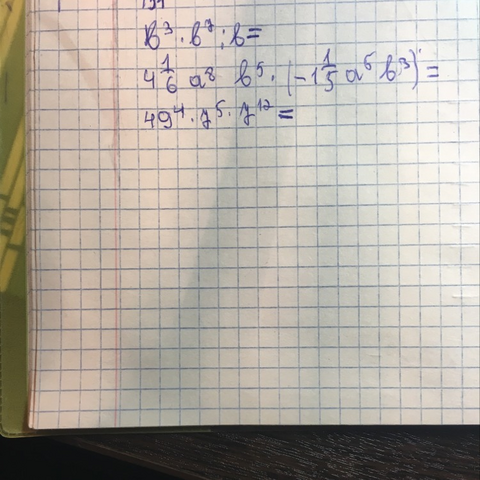 b³ · b⁷ : b =
4 1/6 a⁸ b⁵ · (-1 1/5 a⁵ b³) =
49⁴ · 7⁵ · 7¹² =